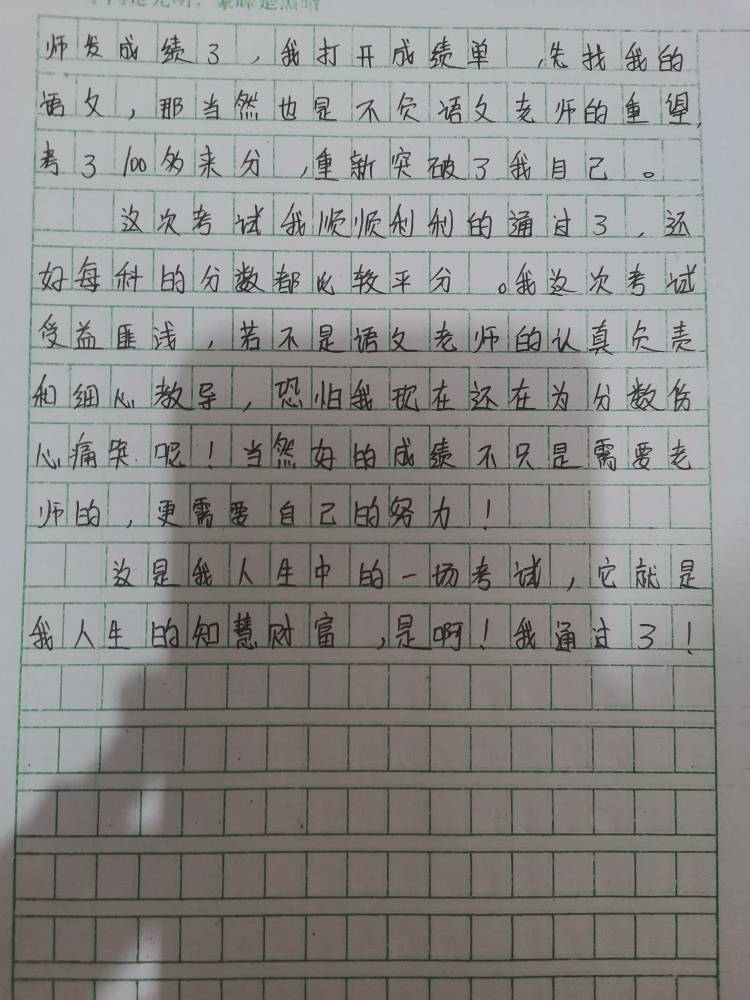 师发成绩了，我打开成绩单，先找我的
语文，那当然也是不负语文老师的重望，
考了100多来分，重新突破了我自己。
这次考试我顺顺利利的通过了，还
好每科的分数都比较平分。我这次考试
受益匪浅，若不是语文老师的认真负责
和细心教导，恐怕我现在还在为分数伤
心痛哭呢！当然好的成绩不只是需要老
师的，更需要自己的努力！
这是我人生中的一场考试，它就是
我人生的知慧财富，是啊！我通过了！